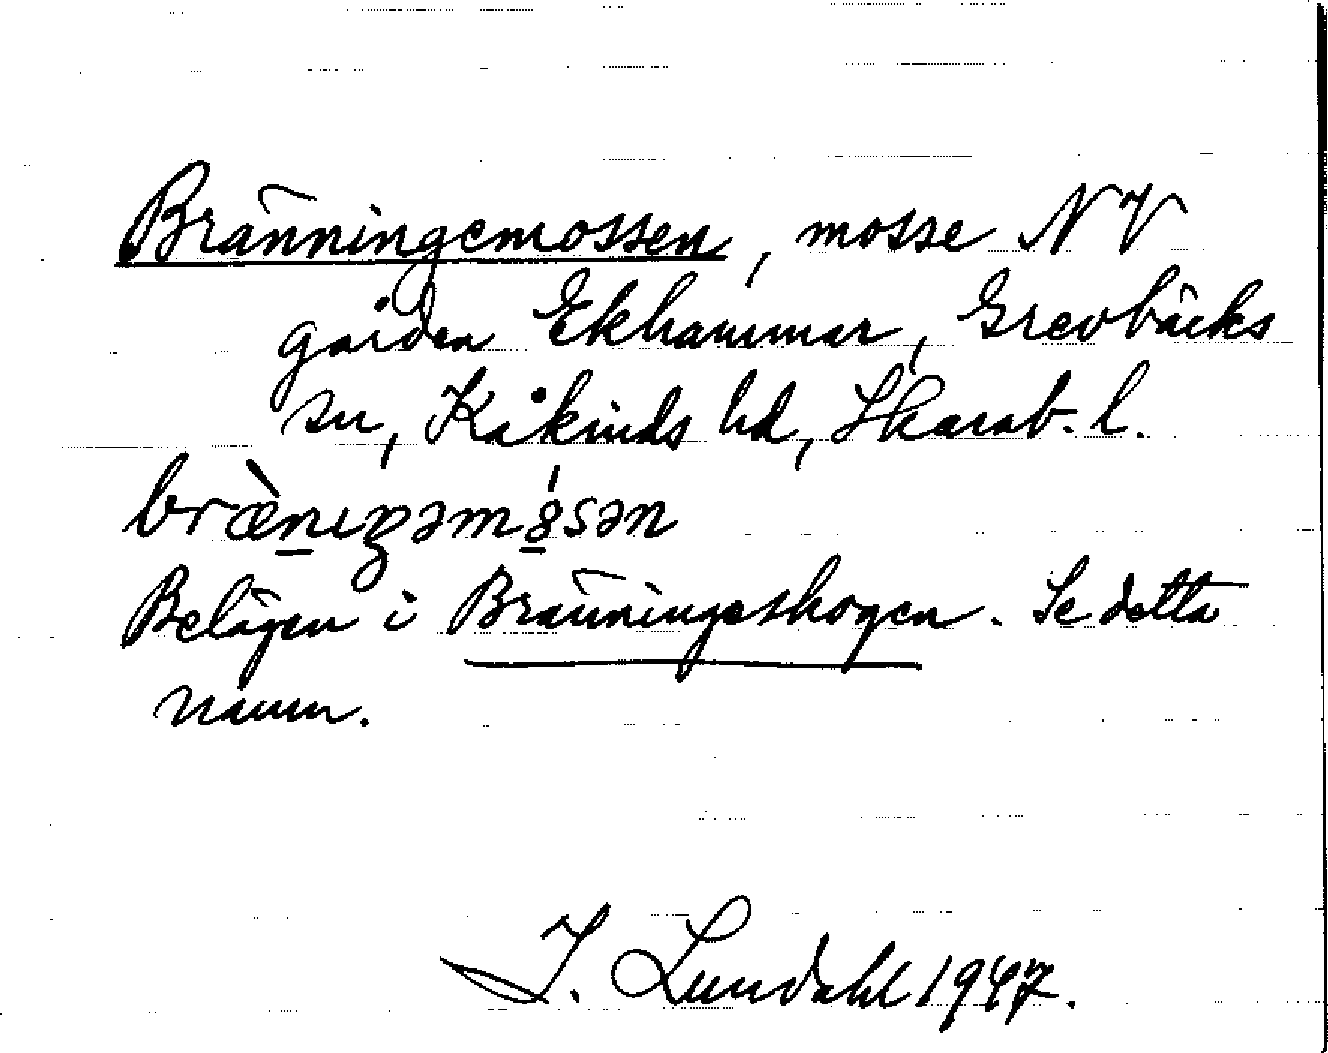 Bränningemossen, mosse NV
gården Ekhammar, Grevbäcks
sn, Kåkinds hd, Skarab. l.
bræ̀nɪŋəmósən
Belägen i Bränningeskogen. Se detta
namn.
I. Lundahl 1947.